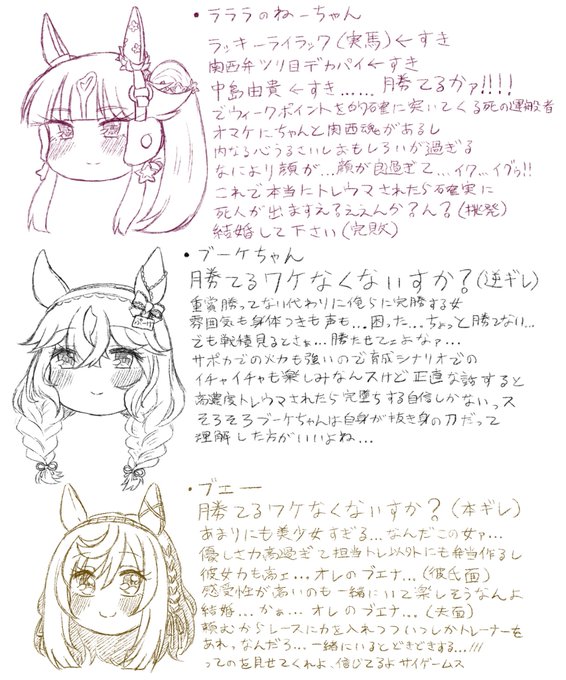 ・ラララのねーちゃん
ラッキーライラック(実馬)←すき
関西弁ツリ目デカパイ←すき
中島由貴←すき……勝てるかァ!!!!
でウィークポイントを的確に突いてくる死の運搬者
オマケにちゃんと関西魂があるし
内なる心うるさいしおもしろいが過ぎる
なにより顔が…顔が良過ぎて…イク…イグゥ!!
これで本当にトレウマされたら確実に
死人が出ますえ?ええんか?ん?(挑発)
結婚して下さい(完敗)
・ブーケちゃん
勝てるワケなくないすか?(逆ギレ)
重賞勝ってない代わりに俺らに完勝する女
雰囲気も身体つきも声も…困った…ちょっと勝てない…
でも戦積見るとさぁ…勝たせてぇよなァ…
サポカでの火力も強いので育成シナリオでの
イチャイチャも楽しみなんスけど正直な話すると
高濃度トレウマされたら完堕ちする自信しかないっス
そろそろブーケちゃんは自身が抜き身の刀だって
理解した方がいいよね…
・ブエー
勝てるワケなくないすか?(本ギレ)
あまりにも美少女すぎる…なんだこの女ァ…
優しさ力高過ぎて担当トレ以外にも弁当作るし
彼女力も高ェ…オレのブエナ…(彼氏面)
感受性が高いのも一緒にいて楽しそうなんよ
結婚…かぁ…オレのブエナ…(夫面)
頼むからレースに力を入れつついつしかトレーナーを
あれっなんだろ…一緒にいるとどきどきする…!!!
ってのを見せてくれよ、信じてるよサイゲームス